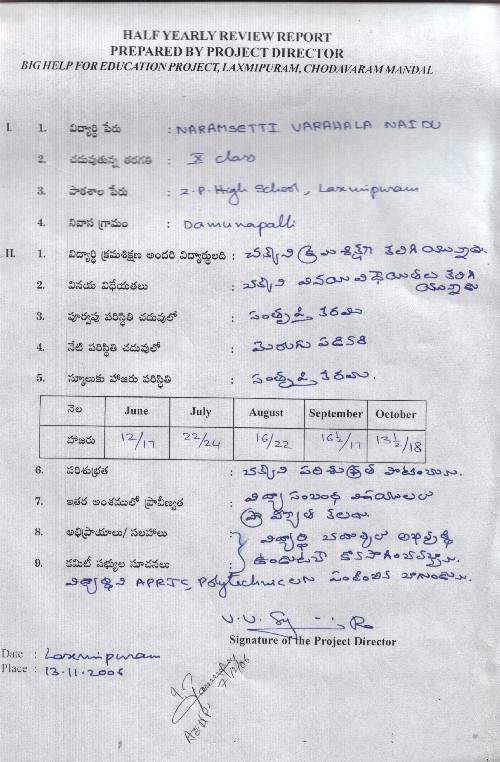 HALF YEARLY REVIEW REPORT
PREPARED BY PROJECT DIRECTOR
BIG HELP FOR EDUCATION PROJECT, LAXMIPURAM, CHODAVARAM MANDAL
I. 1. విద్యార్ధి పేరు : NARAMSETTI VARAHALA NAIDU
2. చదువుతున్న తరగతి : X class
3. పాఠశాల పేరు : Z.P. High School, Laxmipuram
4. నివాస గ్రామం : Damunapalli
II. 1. విద్యార్ధి క్రమశిక్షణ అందరి విద్యార్ధులది : చక్కని క్రమశిక్షణ కలిగి యున్నాడు.
2. వినయ విధేయతలు : చక్కని వినయ విధేయతలు కలిగి
యున్నాడు
3. పూర్వపు పరిస్ధితి చదువులో : సంతృప్తి కరము
4. నేటి పరిస్ధితి చదువులో : మెరుగు పడినది
5. స్కూలుకు హాజరు పరిస్ధితి : సంతృప్తి కరము.
నెల June July August September October
హాజరు 12/17 22/24 16/22 16½/17 13½/18
6. పరిశుభ్రత : చక్కని పరిశుభ్రత పాటించును.
7. ఇతర అంశములో ప్రావీణ్యత : విద్యా సంబంధ విషయాలలో
ప్రావీణ్యత కలదు.
8. అభిప్రాయాలు/ సలహాలు : విద్యార్ధి చదువుల
9. కమిటీ సభ్యుల సూచనలు :
విద్యార్ధిని APRJC, Polytechnic లకు
Signature of the Project Director
Date : Laxmipuram
Place : 13.11.2006
7/12/06